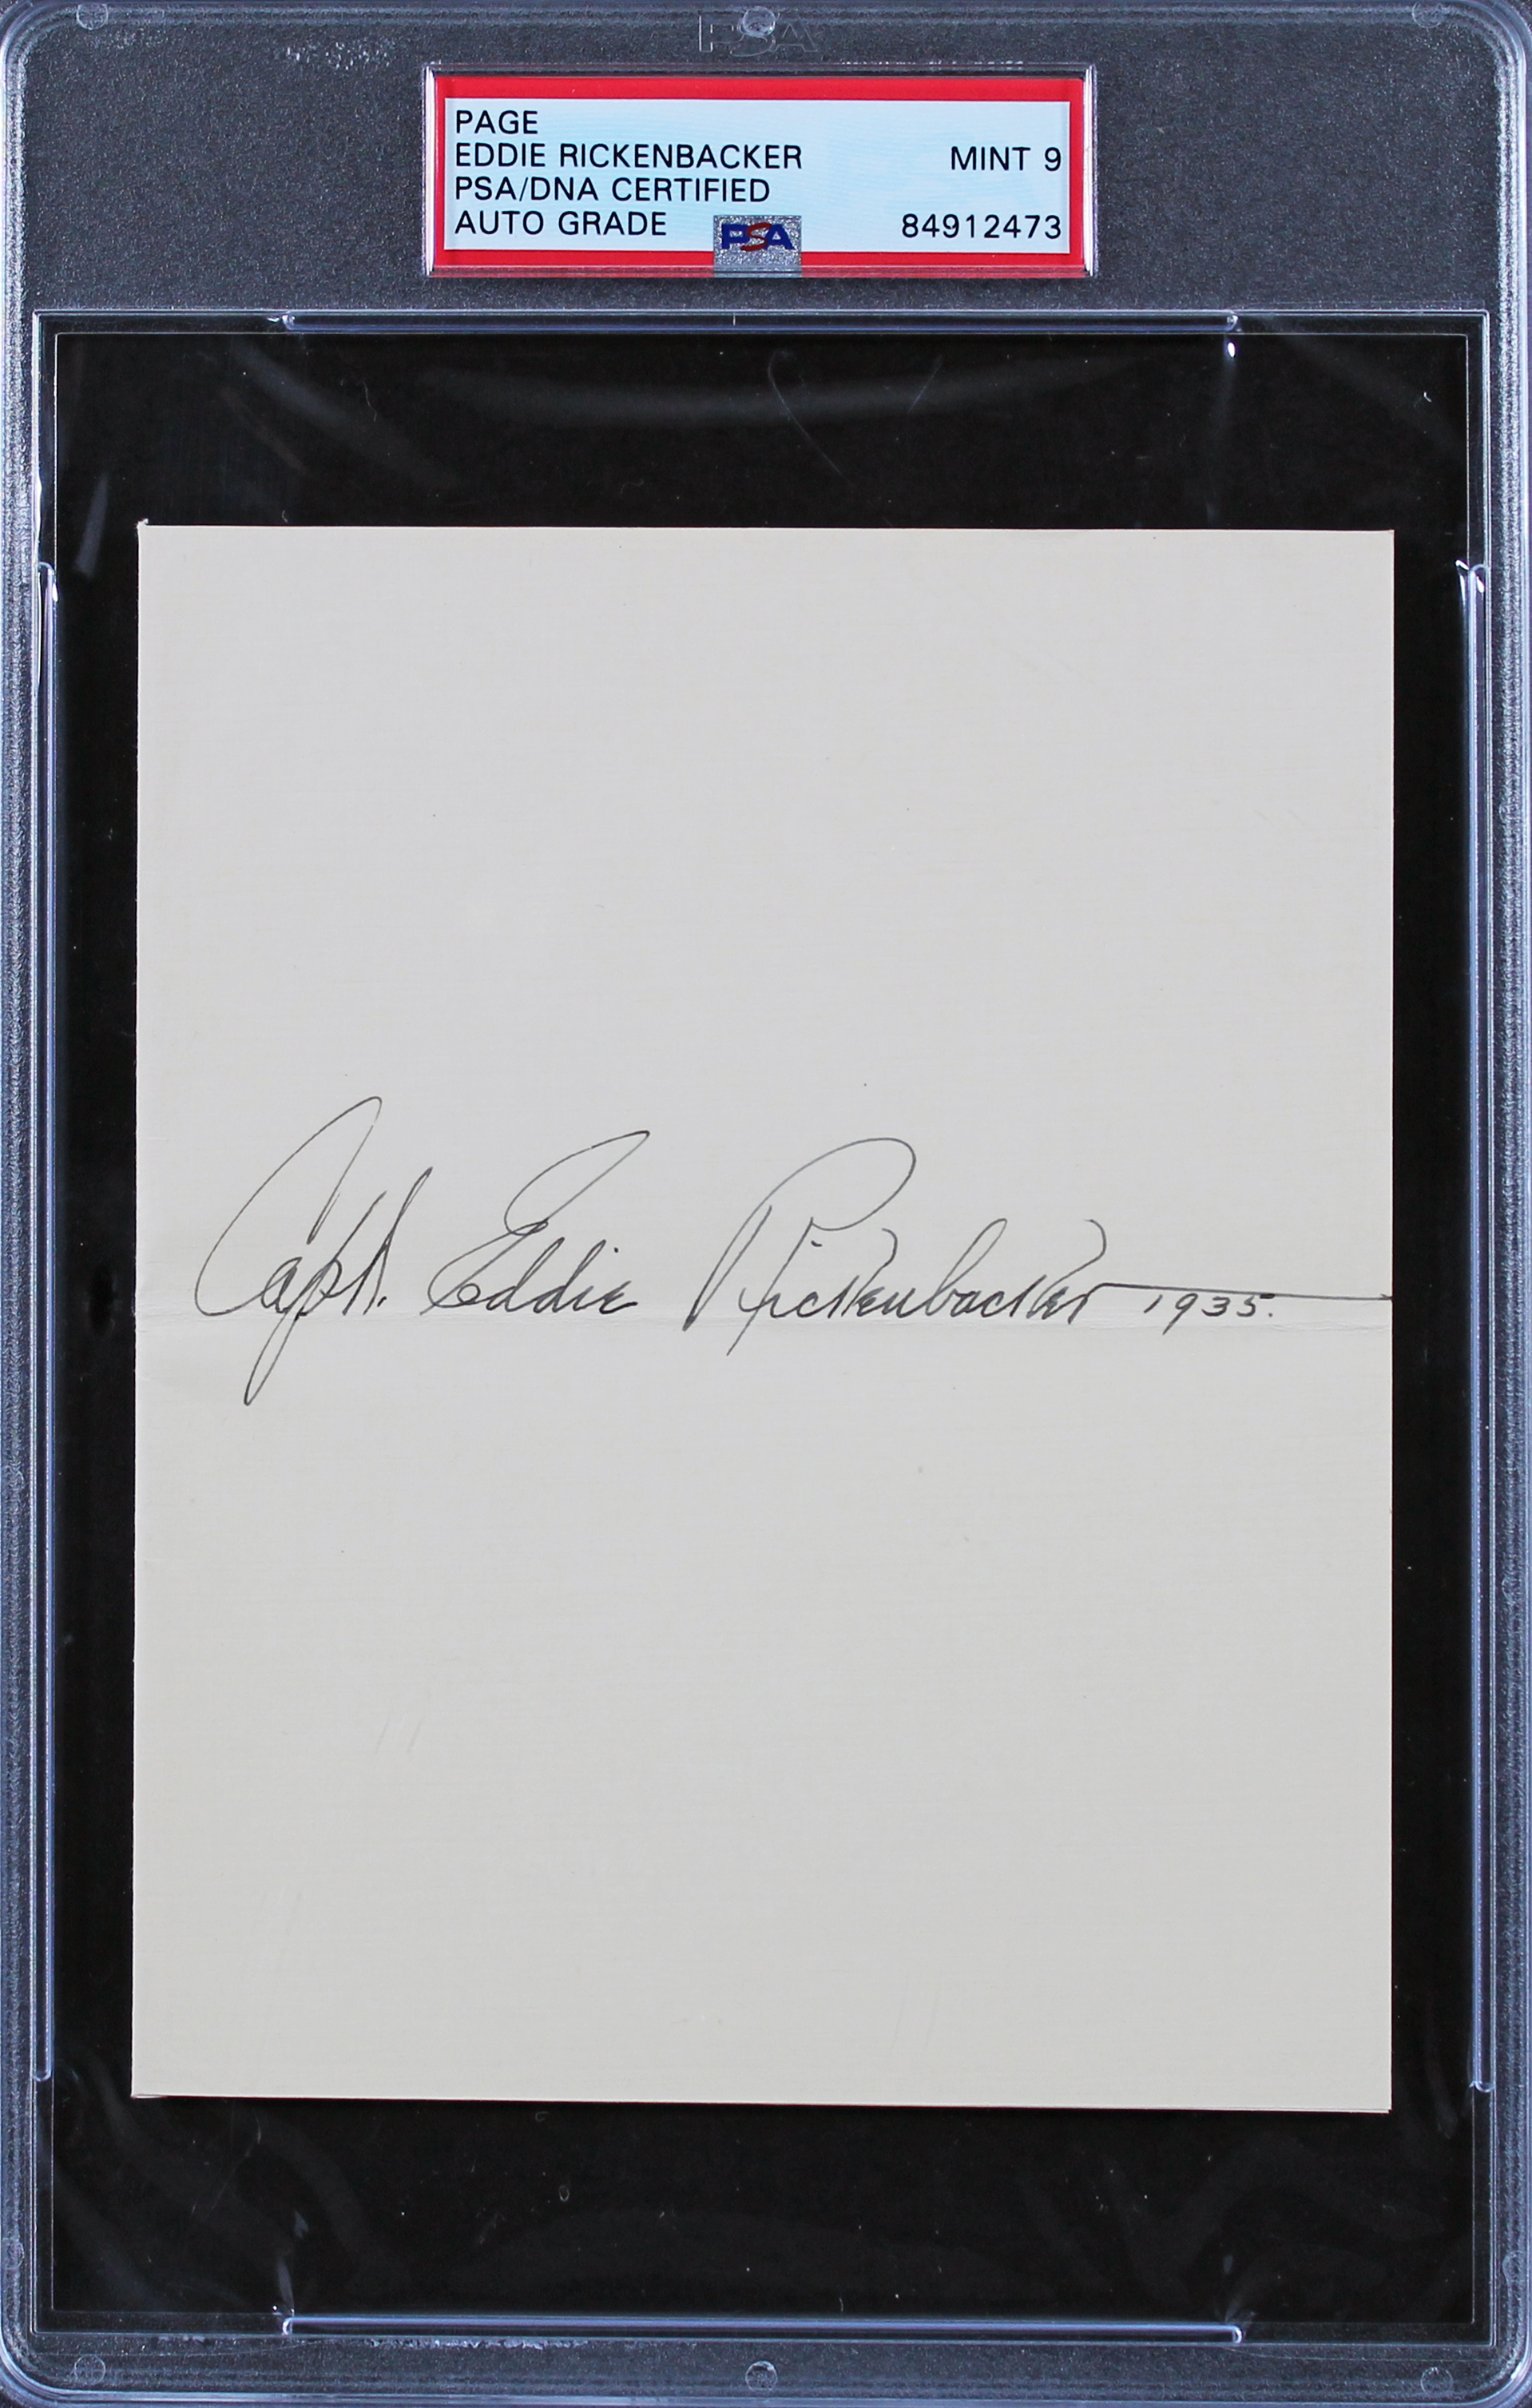 PSA
PAGE
EDDIE RICKENBACKER MINT 9
PSA/DNA CERTIFIED
AUTO GRADE PSA 84912473
Capt. Eddie Rickenbacker 1935.